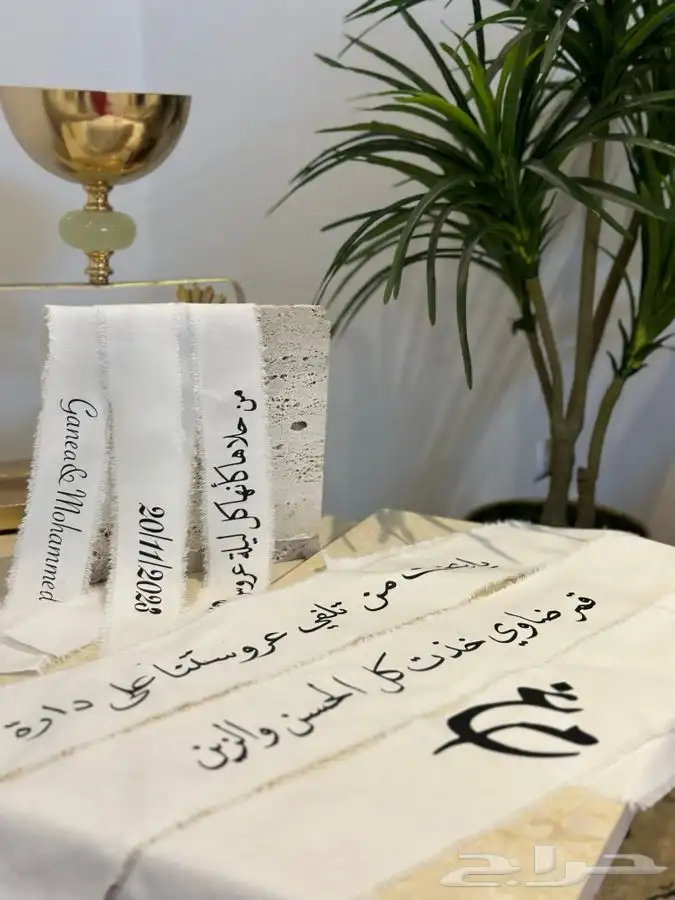 Ganea & Mohammed
20/11/2023
من حلاها كأنها كل ليلة عروس
يا بخت من تلفي عروستنا على دارة
قمر ضاوي خذت كل الحسن والزين
حراج